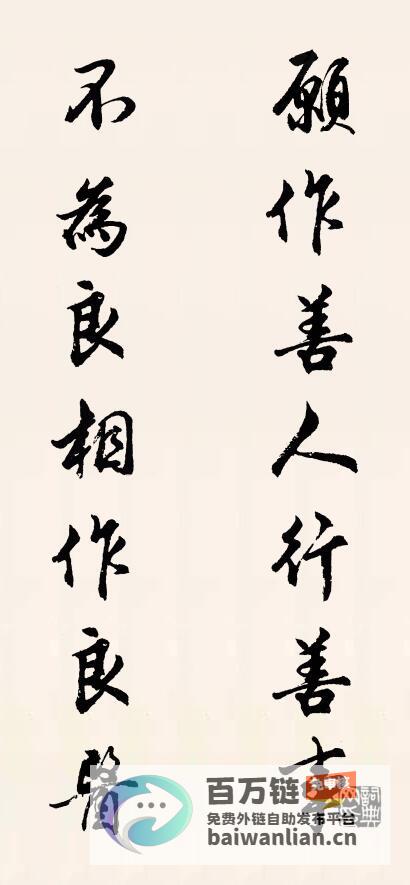 願作善人行善事
不為良相作良醫
百万链
免费外链自助发布平台
baiwanlian.cn